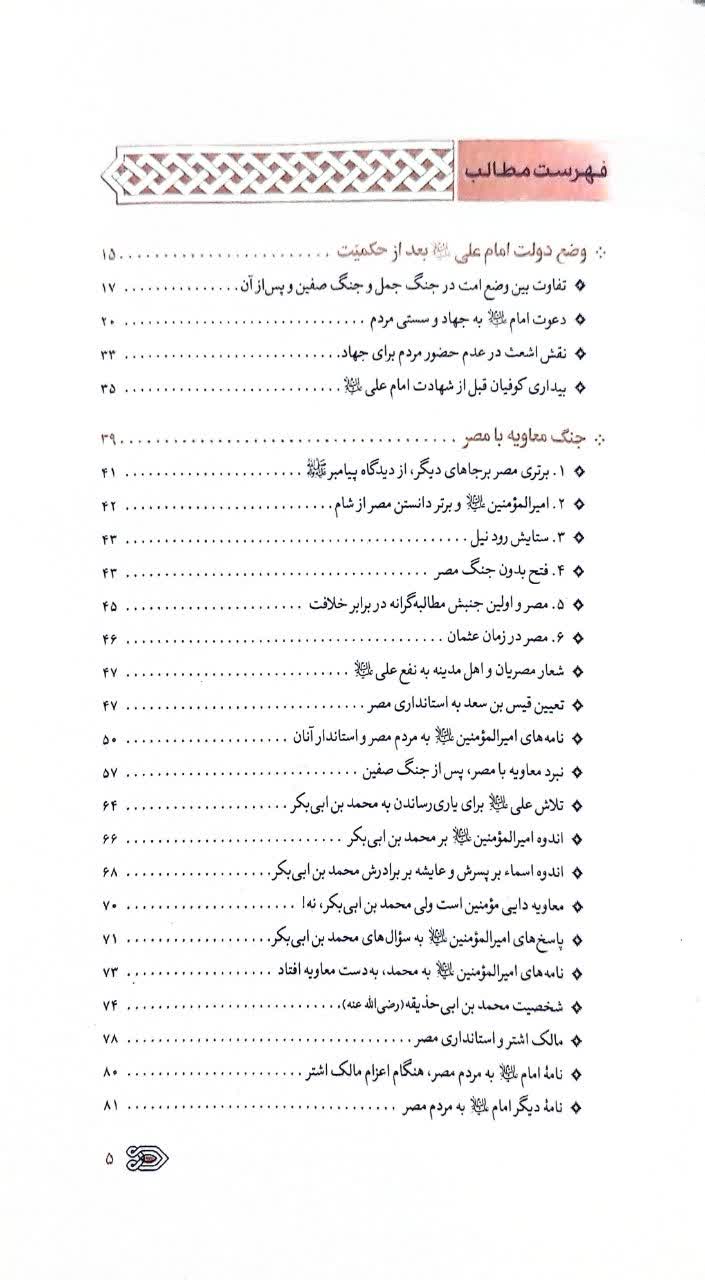 فهرست مطالب
وضع دولت امام علی علیه السلام بعد از حکمیّت ........................ ۱۵
تفاوت بین وضع امت در جنگ جمل و جنگ صفین و پس از آن ............... ۱۷
دعوت امام علیه السلام به جهاد و سستی مردم ........................ ۲۰
نقش اشعث در عدم حضور مردم برای جهاد ........................ ۳۳
بیداری کوفیان قبل از شهادت امام علی علیه السلام ........................ ۳۵
جنگ معاویه با مصر ........................ ۳۹
۱. برتری مصر بر جاهای دیگر، از دیدگاه پیامبر ﷺ ........................ ۴۱
۲. امیرالمؤمنین علیه السلام و برتر دانستن مصر از شام ........................ ۴۲
۳. ستایش رود نیل ........................ ۴۳
۴. فتح بدون جنگ مصر ........................ ۴۳
۵. مصر و اولین جنبش مطالبه‌گرانه در برابر خلافت ........................ ۴۵
۶. مصر در زمان عثمان ........................ ۴۶
شعار مصریان و اهل مدینه به نفع علی علیه السلام ........................ ۴۷
تعیین قیس بن سعد به استانداری مصر ........................ ۴۷
نامه‌های امیرالمؤمنین علیه السلام به مردم مصر و استاندار آنان ........................ ۵۰
نبرد معاویه با مصر، پس از جنگ صفین ........................ ۵۷
تلاش علی علیه السلام برای یاری رساندن به محمد بن ابی‌بکر ........................ ۶۴
اندوه امیرالمؤمنین علیه السلام بر محمد بن ابی‌بکر ........................ ۶۶
اندوه اسماء بر پسرش و عایشه بر برادرش محمد بن ابی‌بکر ........................ ۶۸
معاویه دایی مؤمنین است ولی محمد بن ابی‌بکر، نه! ........................ ۷۰
پاسخ‌های امیرالمؤمنین علیه السلام به سؤال‌های محمد بن ابی‌بکر ........................ ۷۱
نامه‌های امیرالمؤمنین علیه السلام به محمد، به‌دست معاویه افتاد ........................ ۷۳
شخصیت محمد بن ابی‌حذیقه (رضی الله عنه) ........................ ۷۴
مالک اشتر و استانداری مصر ........................ ۷۸
نامهٔ امام علیه السلام به مردم مصر، هنگام اعزام مالک اشتر ........................ ۸۰
نامهٔ دیگر امام علیه السلام به مردم مصر ........................ ۸۱
۵